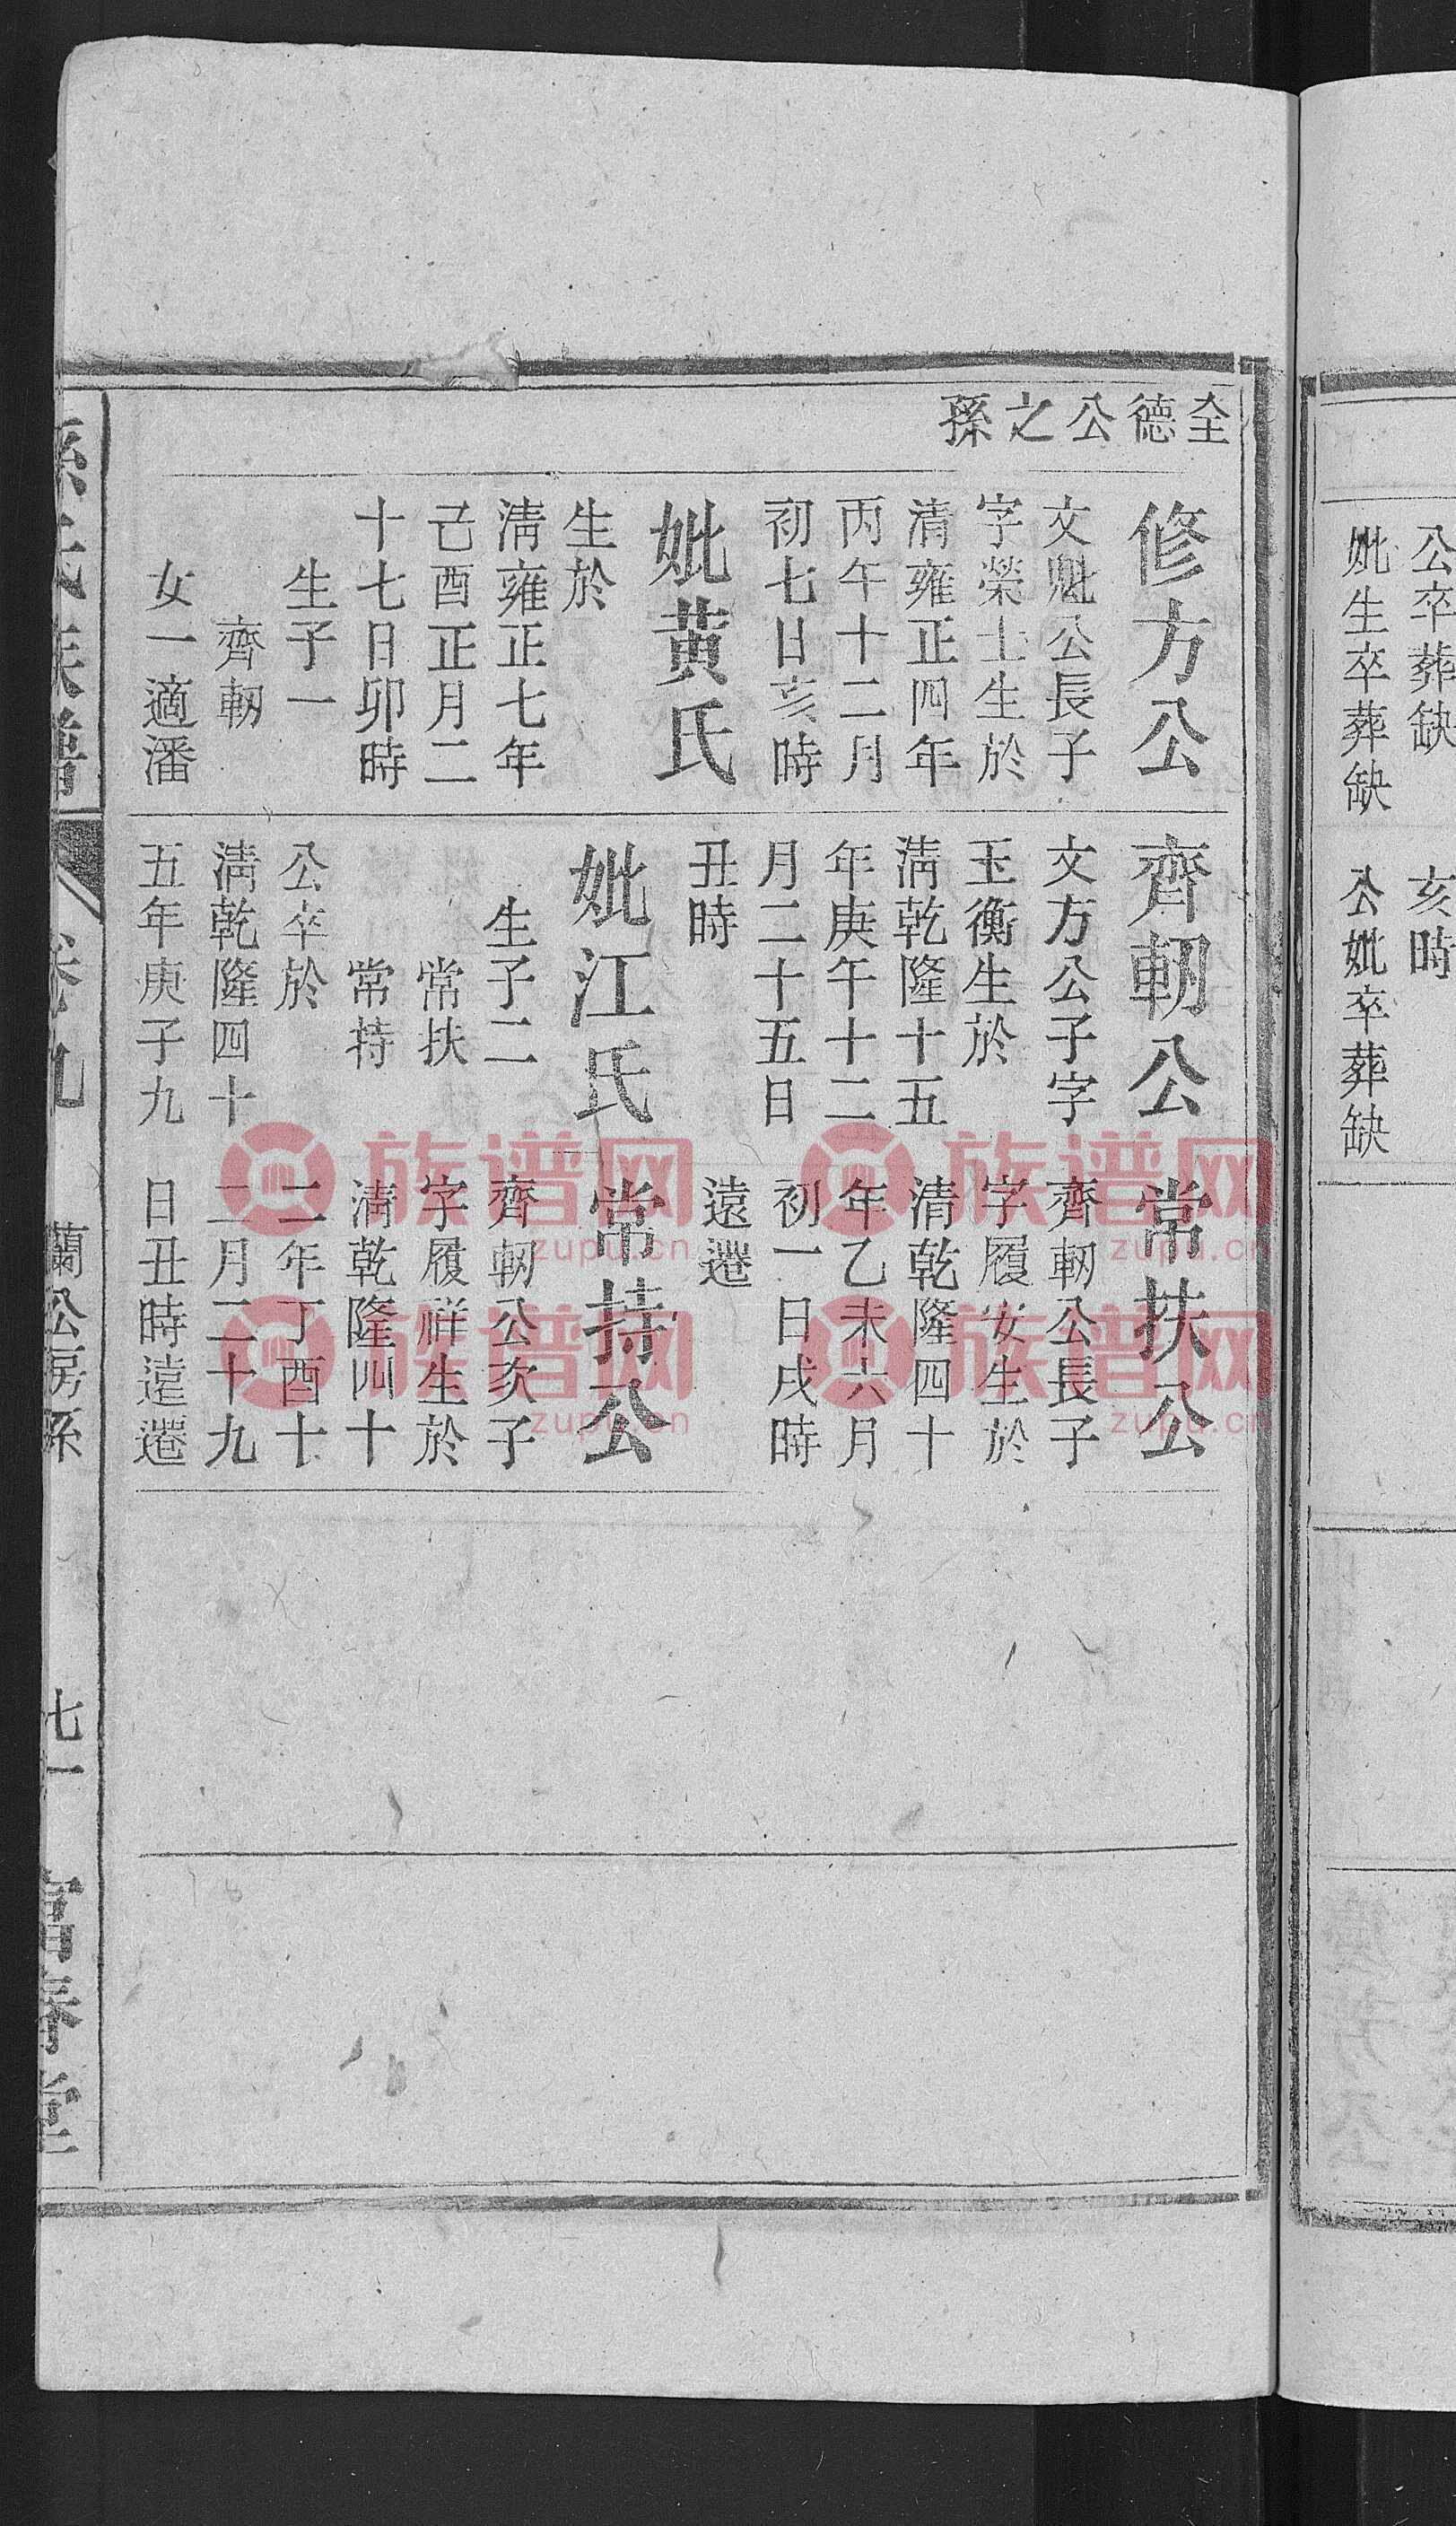 公卒葬缺
妣生卒葬缺
亥時
公妣卒葬缺
全德公之孫
修方公
文魁公長子
字榮士生於
清雍正四年
丙午十二月
初七日亥時
妣黃氏
生於
清雍正七年
己酉正月二
十七日卯時
生子一
齊軔
女一適潘
齊軔公
文方公子字
玉衡生於
清乾隆十五
年庚午十二
月二十五日
丑時
妣江氏
生子二
常扶
常持
公卒於
清乾隆四十
五年庚子九
常扶公
齊軔公長子
字履安生於
清乾隆四十
年乙未六月
初一日戌時
遠遷
常持公
齊軔公次子
字履祥生於
清乾隆四十
二年丁酉十
二月二十九
日丑時遠遷
孫氏族譜
卷九
蘭公房系
七十
富春堂
族谱网
zupu.cn
族谱网
zupu.cn
族谱网
zupu.cn
族谱网
zupu.cn